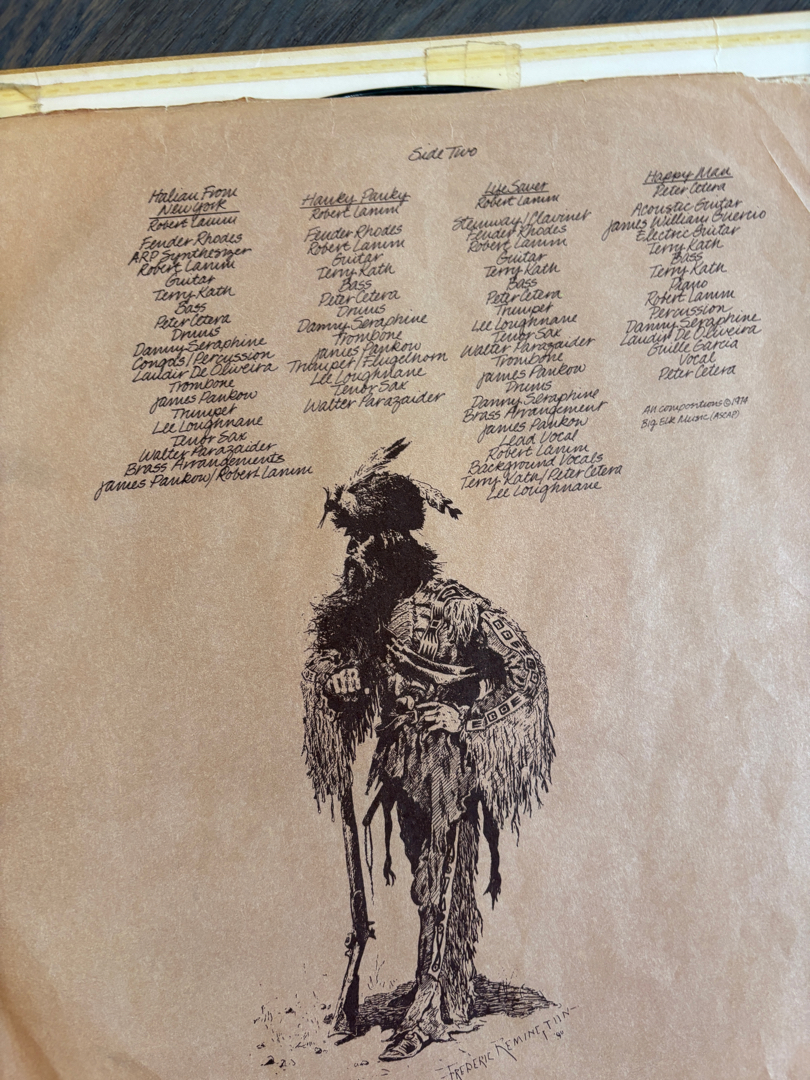 Side Two
Italian From
New York
Robert Lamm
Fender Rhodes
ARP Synthesizer
Robert Lamm
Guitar
Terry Kath
Bass
Peter Cetera
Drums
Danny Seraphine
Congas/Percussion
Laudir De Oliveira
Trombone
James Pankow
Trumpet
Lee Loughnane
Tenor Sax
Walter Parazaider
Brass Arrangements
James Pankow/Robert Lamm
Hanky Panky
Robert Lamm
Fender Rhodes
Robert Lamm
Guitar
Terry Kath
Bass
Peter Cetera
Drums
Danny Seraphine
Trombone
James Pankow
Trumpet/Flugelhorn
Lee Loughnane
Tenor Sax
Walter Parazaider
Life Saver
Robert Lamm
Steinway/Clavinet
Fender Rhodes
Robert Lamm
Guitar
Terry Kath
Bass
Peter Cetera
Trumpet
Lee Loughnane
Tenor Sax
Walter Parazaider
Trombone
James Pankow
Drums
Danny Seraphine
Brass Arrangement
James Pankow
Lead Vocal
Robert Lamm
Background Vocals
Terry Kath/Peter Cetera
Lee Loughnane
Happy Man
Peter Cetera
Acoustic Guitar
James William Guercio
Electric Guitar
Terry Kath
Bass
Terry Kath
Piano
Robert Lamm
Percussion
Danny Seraphine
Laudir De Oliveira
Guille Garcia
Vocal
Peter Cetera
All compositions © 1974
Big Elk Music (ASCAP)
-FREDERIC REMINGTON-